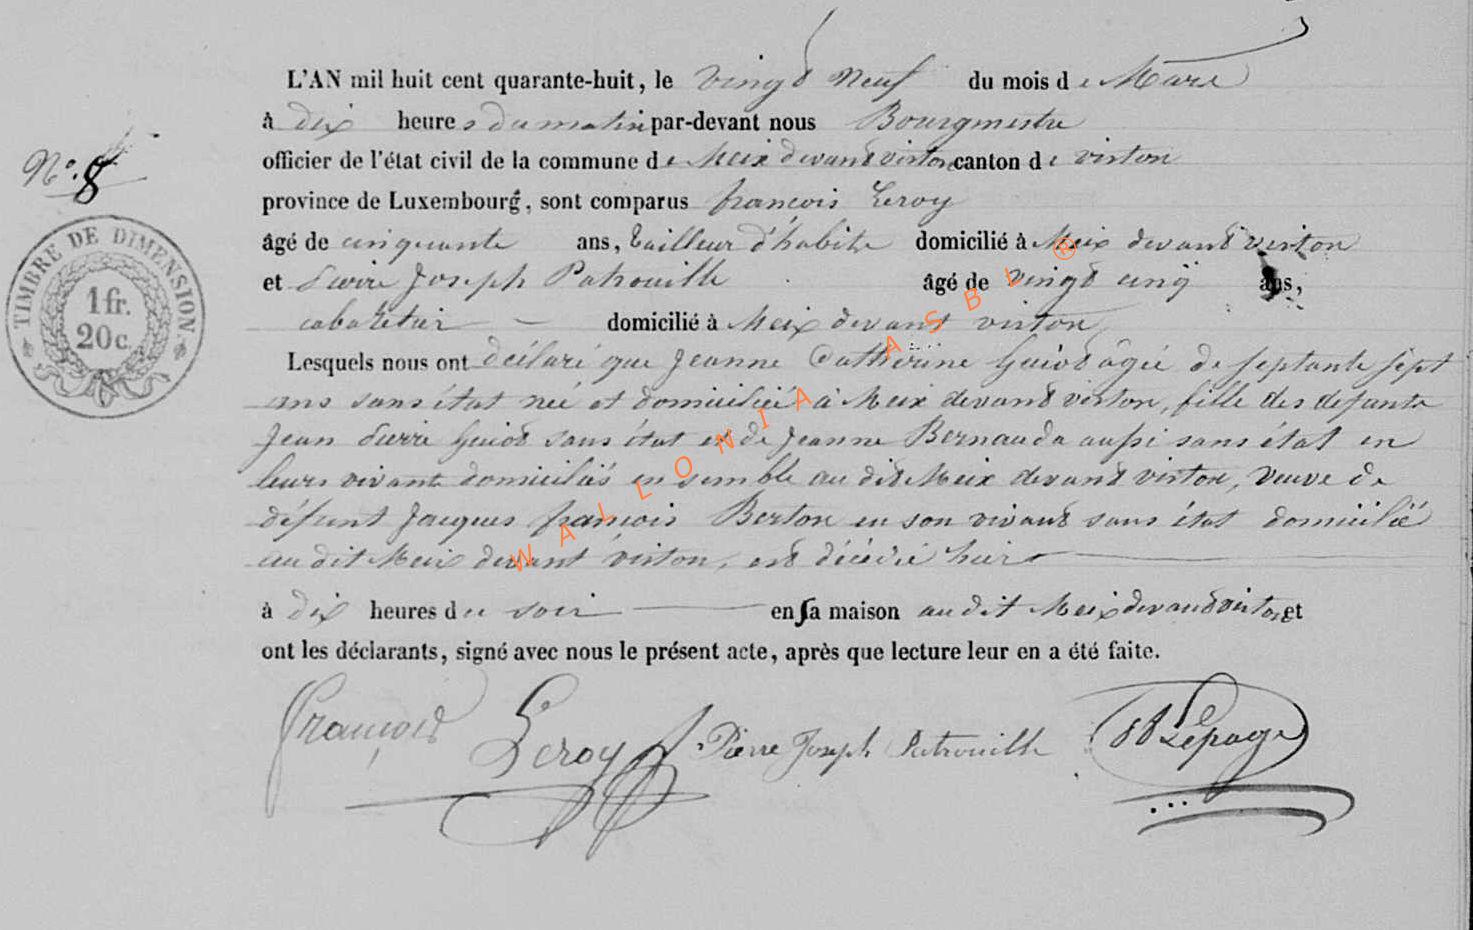 L'AN mil huit cent quarante-huit, le vingt neuf du mois de Mars
à dix heures du matin par-devant nous Bourgmestre
No. 8
officier de l'état civil de la commune de Meix devant virton canton de virton
province de Luxembourg, sont comparus françois Leroy
âgé de cinquante ans, tailleur d'habits domicilié à Meix devant virton
et Pierre Joseph Patrouille âgé de vingt cinq ans,
cabaretier domicilié à Meix devant virton
Lesquels nous ont déclaré que Jeanne Catherine Guiot âgée de septante sept
ans sans état née et domiciliée à Meix devant virton, fille des defunts
Jean Pierre Guiot sans état et de Jeanne Bernauda aussi sans état en
leurs vivants domiciliés ensemble au dit Meix devant virton, veuve de
défunt Jacques françois Berton en son vivant sans état domicilié
au dit Meix devant virton, est décédée hier
à dix heures du soir en sa maison au dit Meix devant virton et
ont les déclarants, signé avec nous le présent acte, après que lecture leur en a été faite.
François Leroy Pierre Joseph Patrouille Lepage
TIMBRE DE DIMENSION
1 fr.
20 c.
WALLONIA ASBL ®